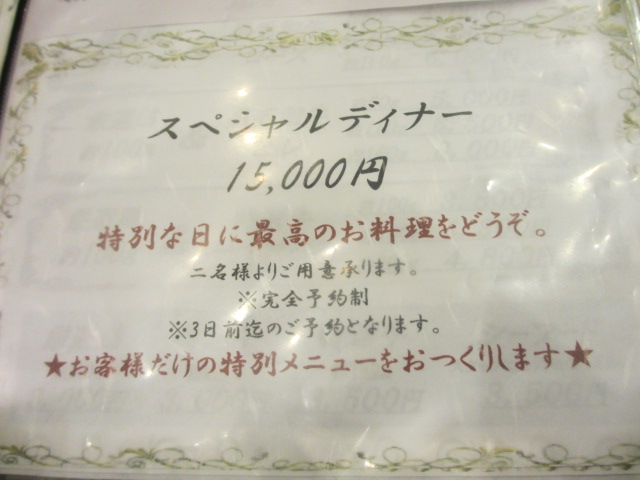 スペシャルディナー
15,000円
特別な日に最高のお料理をどうぞ。
二名様よりご用意承ります。
※完全予約制
※3日前迄のご予約となります。
★お客様だけの特別メニューをおつくりします★